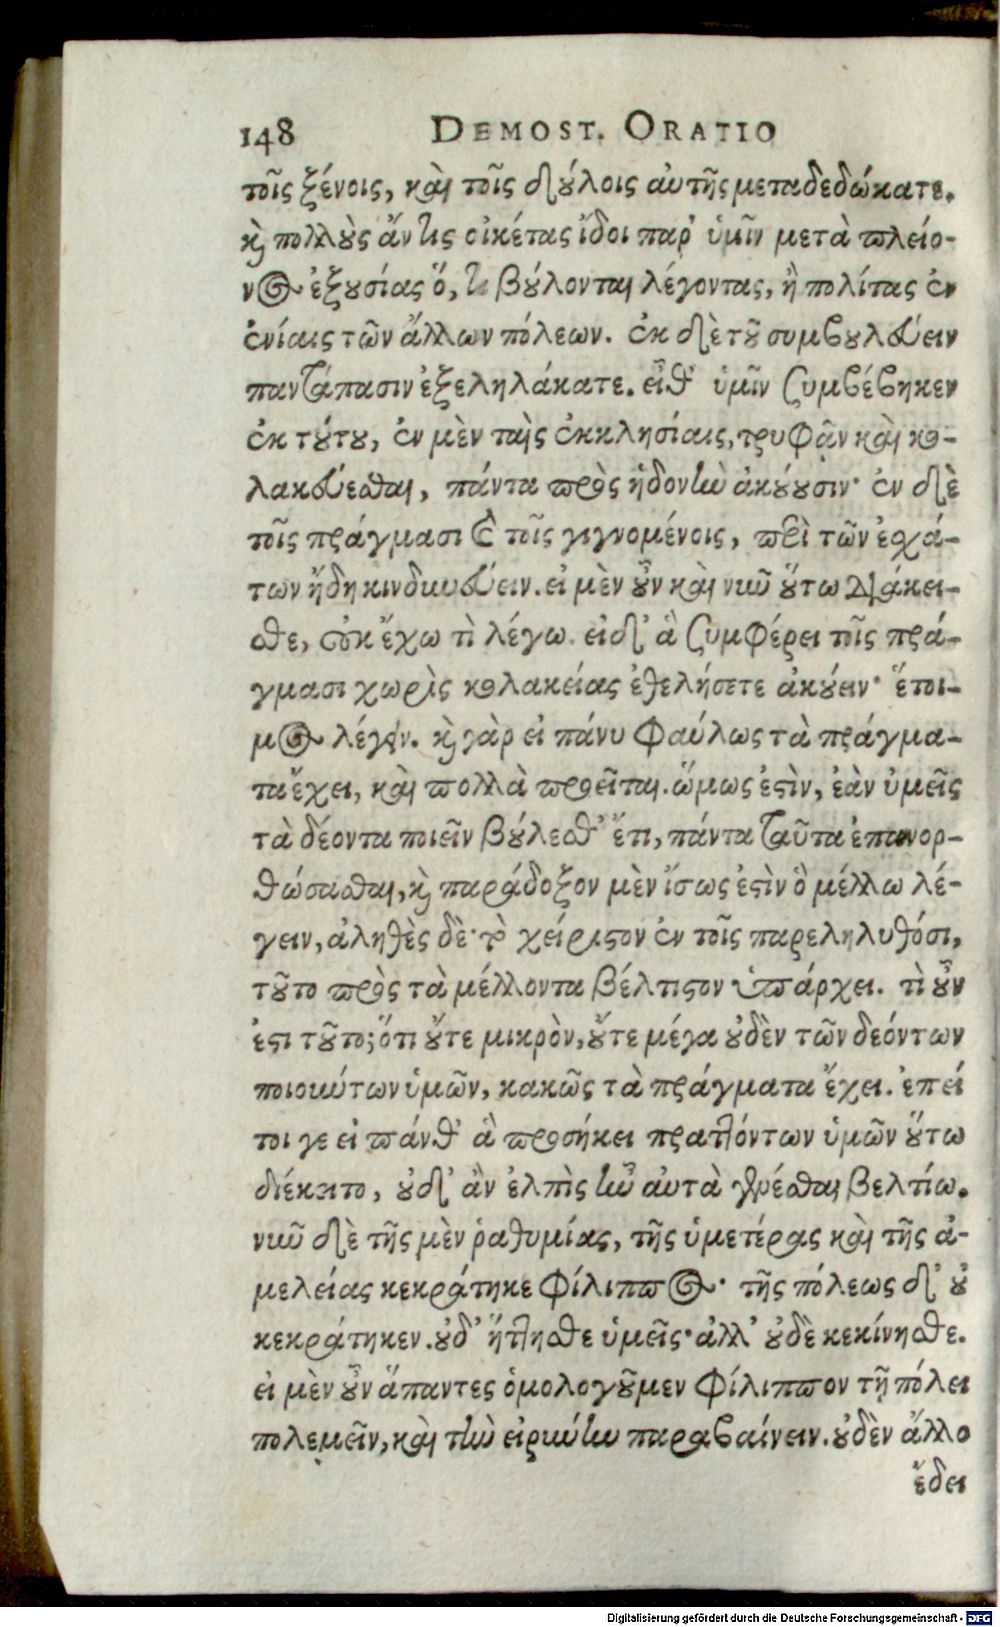 148 DEMOST. ORATIO
τοῖς ξένοις, καὶ τοῖς δούλοις αὐτῆς μεταδεδώκατε.
καὶ πολλοὺς ἄν τις οἰκέτας ἴδοι παρ' ὑμῖν μετὰ πλείο-
νος ἐξουσίας ὅ, τι βούλονται λέγοντας, ἢ πολίτας ἐν
ἐνίαις τῶν ἄλλων πόλεων. ἐκ δὲ τοῦ συμβουλεύειν
παντάπασιν ἐξεληλάκατε. εἶθ' ὑμῖν συμβέβηκεν
ἐκ τούτου, ἐν μὲν ταῖς ἐκκλησίαις, τρυφᾷν καὶ κο-
λακεύεσθαι, πάντα πρὸς ἡδονὴν ἀκούουσιν· ἐν δὲ
τοῖς πράγμασι καὶ τοῖς γιγνομένοις, περὶ τῶν ἐσχά-
των ἤδη κινδυνεύειν. εἰ μὲν οὖν καὶ νῦν οὕτω διάκει-
σθε, οὐκ ἔχω τὶ λέγω. εἰ δ' ἃ συμφέρει τοῖς πρά-
γμασι χωρὶς κολακείας ἐθελήσετε ἀκούειν· ἕτοι-
μος λέγειν. καὶ γὰρ εἰ πάνυ φαύλως τὰ πράγμα-
τα ἔχει, καὶ πολλὰ προεῖται. ὥμως ἐστὶν, ἐὰν ὑμεῖς
τὰ δέοντα ποιεῖν βούλεσθ' ἔτι, πάντα ταῦτα ἐπανορ-
θώσασθαι, καὶ παράδοξον μὲν ἴσως ἐστὶν ὃ μέλλω λέ-
γειν, ἀληθὲς δὲ· τὸ χείριστον ἐν τοῖς παρεληλυθόσι,
τοῦτο πρὸς τὰ μέλλοντα βέλτιστον ὑπάρχει. τὶ οὖν
ἐστι τοῦτο; ὅτι οὔτε μικρὸν, οὔτε μέγα οὐδὲν τῶν δεόντων
ποιούντων ὑμῶν, κακῶς τὰ πράγματα ἔχει. ἐπεί
τοι γε εἰ πάνθ' ἃ προσήκει πραττόντων ὑμῶν οὕτω
διέκειτο, οὐδ' ἂν ἐλπὶς ἦν αὐτὰ γενέσθαι βελτίω.
νῦν δὲ τῆς μὲν ῥαθυμίας, τῆς ὑμετέρας καὶ τῆς ἀ-
μελείας κεκράτηκε Φίλιππος· τῆς πόλεως δ' οὐ
κεκράτηκεν. οὐδ' ἥττησθε ὑμεῖς· ἀλλ' οὐδὲ κεκίνησθε.
εἰ μὲν οὖν ἅπαντες ὁμολογοῦμεν Φίλιππον τῇ πόλει
πολεμεῖν, καὶ τὴν εἰρήνην παραβαίνειν. οὐδὲν ἄλλο
ἔδει
Digitalisierung gefördert durch die Deutsche Forschungsgemeinschaft - DFG